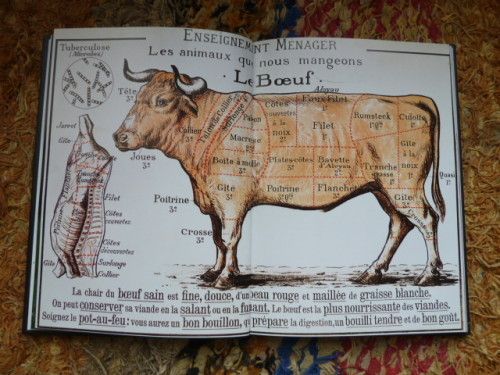 ENSEIGNEMENT MENAGER
Les animaux que nous mangeons
Le Bœuf
Tuberculose
(Microbes)
Tête
Joues
3e
Collier
Talon de Collier
Paleron
Macreuse
Côtes
à la
noix
2e
Aloyau
Faux Filet
Filet
Rumsteck
Culotte
Boîte à moelle
Plates-côtes
Bavette
d'Aloyau
Tranche
Quasi
Gîte
3e
Poitrine
3e
Poitrine
Flanchet
Gîte
Crosse
3e
Crosse
3e
Jarret
Gîte
Filet
Côtes
couvertes
Côtes
découvertes
Surlonge
Collier
Gîte
La chair du bœuf sain est fine, douce, d'un beau rouge et maillée de graisse blanche.
On peut conserver sa viande en la salant ou en la fumant. Le bœuf est la plus nourrissante des viandes.
Soignez le pot-au-feu: vous aurez un bon bouillon, qui prépare la digestion, un bouilli tendre et de bon goût.